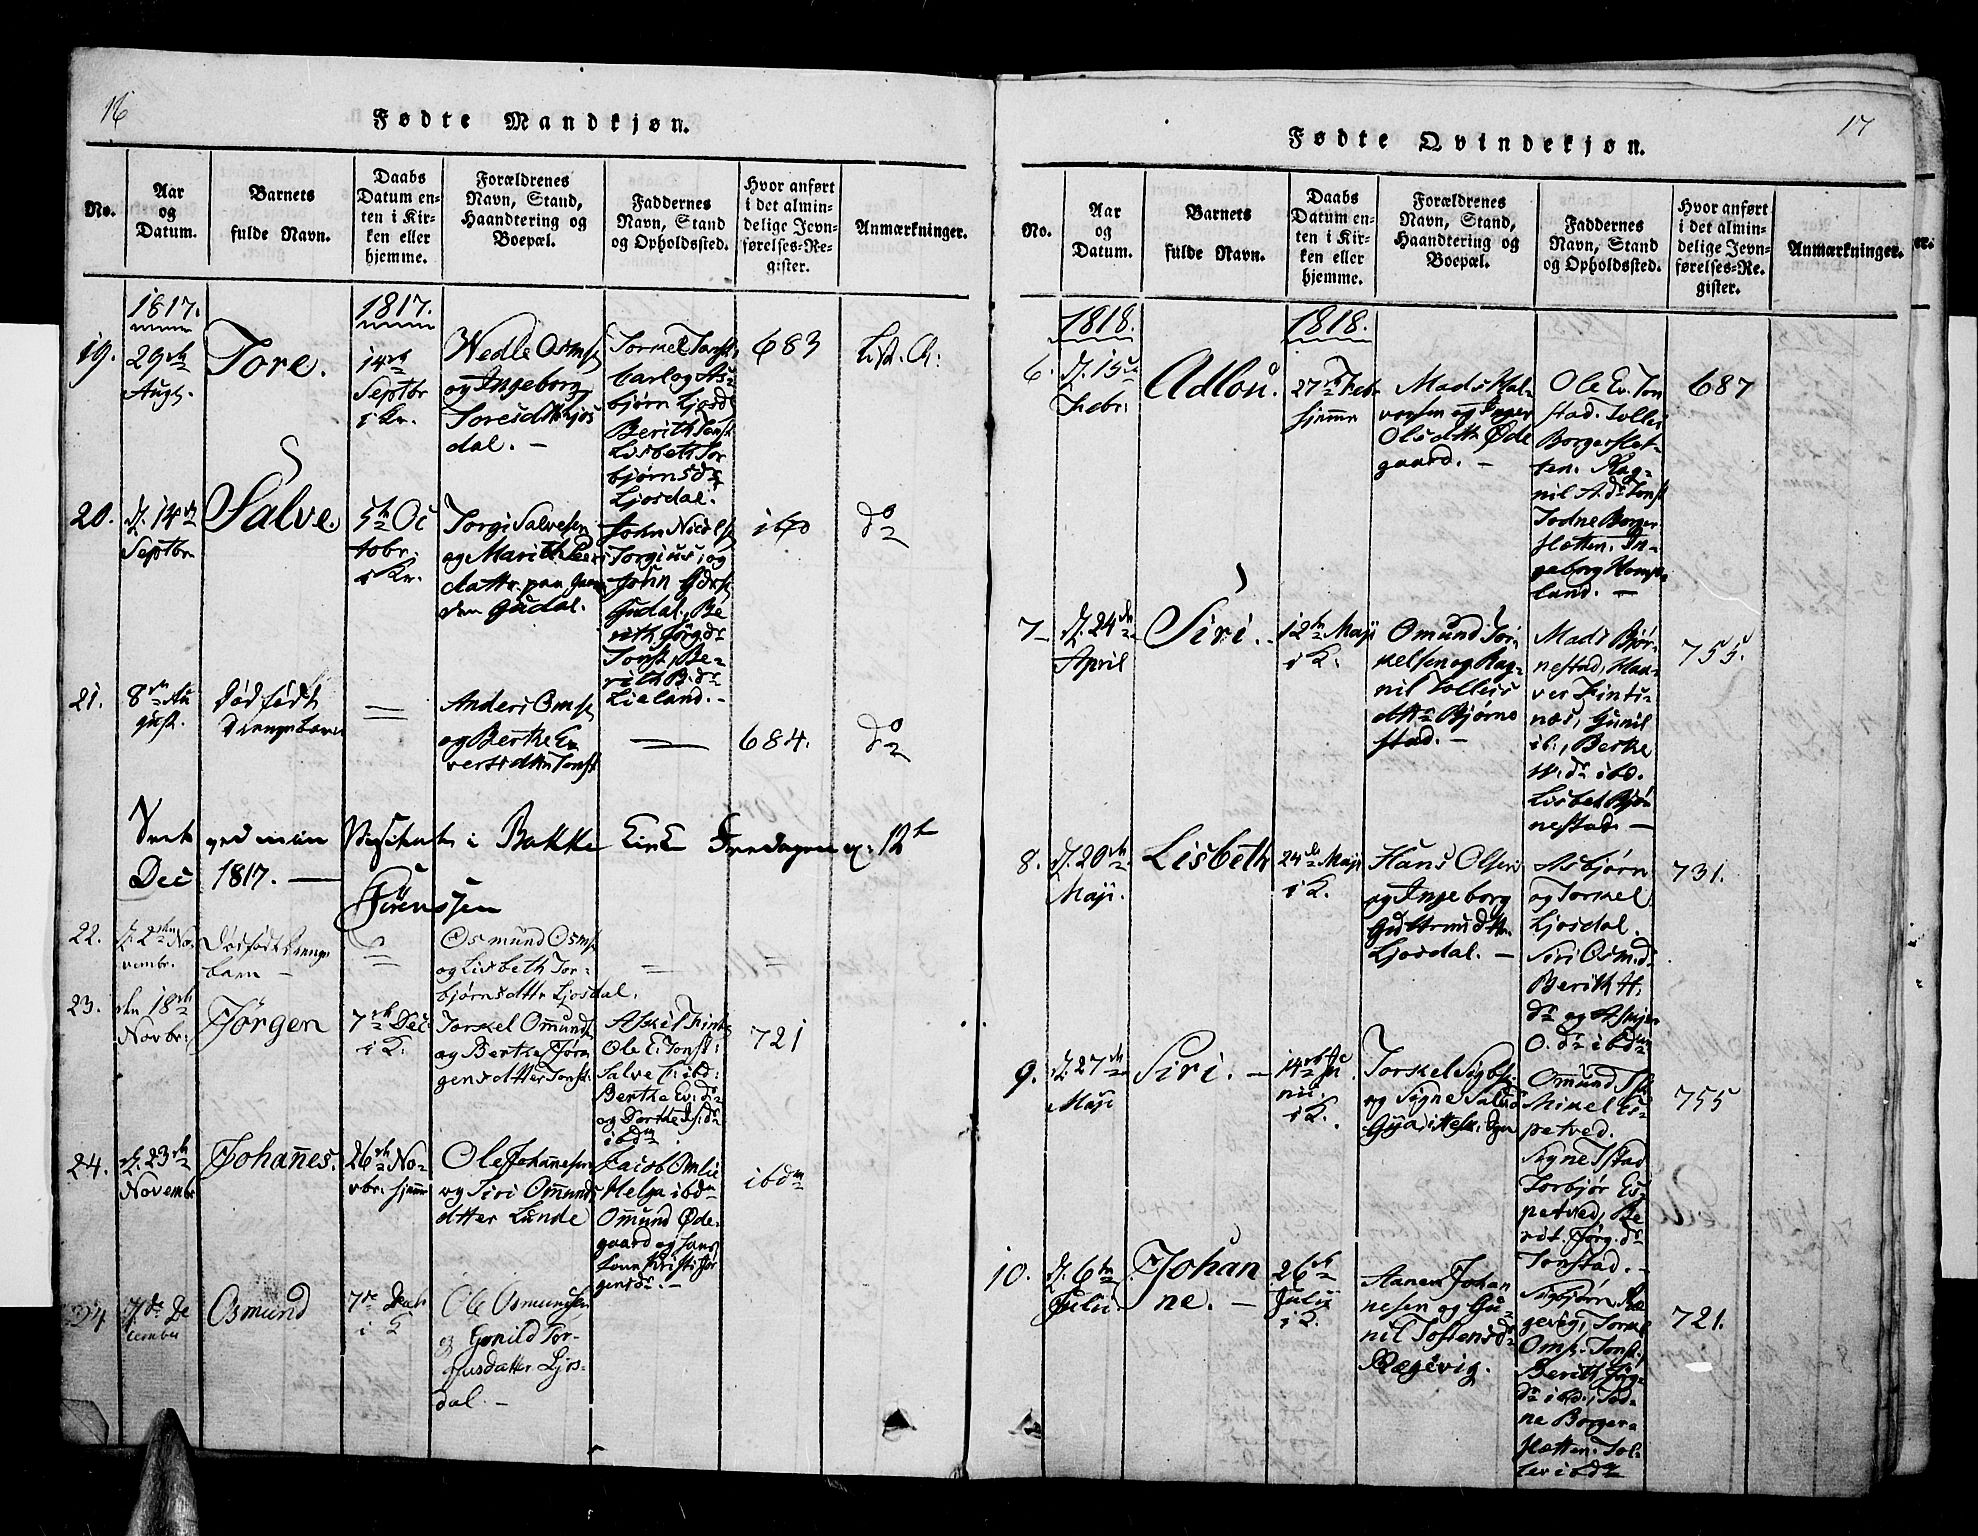 16
Fødte Mandkjøn.
No.
Aar
og
Datum.
Barnets
fulde Navn.
Daabs
Datum en-
ten i Kir-
ken eller
hjemme.
Forældrenes
Navn, Stand,
Haandtering og
Boepæl.
Faddernes
Navn, Stand
og Opholdssted.
Hvor anført
i det almin-
delige Jevn-
førelses-Re-
gister.
Anmærkninger.
1817.
1817.
19.
29
Augs.
Tore.
14
Septbr
i Kr.
Wedle Osms.
og Ingeborg
Toresdttr Ljos
dal. —
Tormel Tonst.
Carl og As-
bjørn Ljosd.
Berith Tonst.
Lisbeth Tor
bjørnsd.
Ljosdal.
683
List. A:
20.
d. 14
Septbr.
Salve.
5te Oc
tobr.
i Kr.
Torgi Salvesen
og Marith Peers
dattr. paa Gaar
den Gudal.
John Nicols.
Torgius, og
John Gdrs.
Gudal, Be-
rith Jørgdr.
Tonst, Be-
rith B.dr
Lieland. -
1670
do
21.
8 Au
gust.
Død født
Drengebarn
=
Anders Omss.
og Berthe E
versdttr Tonst.
—
684.
do
ved min Visitats i Bakke Kirk Fredagen d. 12t
Dec 1817. —
Sørenssen
22.
d. 2 No-
vembr.
Dødfødt Drenge
barn —
=
Osmund Osms.
og Lisbeth Tor-
bjørnsdttr Ljosdal.
=
=
23.
den 18
Novbr:
Jørgen
7 Dec
i K.
Torkel Omunds.
og Berthe Jør
gensdtter Tonst.
Askel Tints
Ole E. Tonst:
Salve T: ibd:
Berthe Ev: dr
og Dorthe
ibdm
721
24.
d. 23
Novembr
Johannes.
26 No-
vbr. hjemr
Ole Johannesen
og Siri Omunds
dtter Lunde
Jacob Omlie
Helga ibdm
Omund Øde-
gaard og Jans
Kristi Jør
gensdr. -
ibdm
7. De
cember
Osmund
7 Decbr
i K
Ole Osmundsen
og Gunild Tor-
jusdatter Ljos-
dal. -
17
Fødte Qvindekjøn.
No.
Aar
og
Datum.
Barnets
fulde Navn.
Daabs
Datum en-
ten i Kir-
ken eller
hjemme.
Forældrenes
Navn, Stand,
Haandtering og
Boepæl.
Faddernes
Navn, Stand
og Opholdssted.
Hvor anført
i det almin-
delige Jevn-
førelses-Re-
gister.
Anmærkninger.
1818.
1818.
6.
d. 15
Febr:
Adlou.
27 Febr
hjemme
Mads Hal-
vorsen og Inger
Olsdttr Øde
gaard. —
Ole Ev. Ton
stad. Tolles
Borgerhet-
ten. Rag-
nil A. dr Tonst.
Todne Borger
hetten. In-
geborg Homst-
land. —
687
7
d. 24
April
Siri. -
12 Maji
i K.
Omund Tor-
kelsen og Rag-
nil Tolleis
dttr Bjørne
stad. —
Mads Bjør-
nestad, Haa-
ver Fintsi-
næs, Gunil
ib:, Berthe
W. dr ibd.
Lisbet Bjør
nestad. —
755.
8.
d. 20
Maji.
Lisbeth
24 Maji
i K.
Hans Olsen
og Ingeborg
Guttrmsdttr
Ljosdal. —
Asbjørn
og Tormel
Ljosdal.
Siri Osm.d.
Berith H.
dr og Asbjør
O. dr ibdm
731.
9.
d. 27
Maji
Siri. —
14 Ju
nii.
i K.
Torkel Sigbs.
og Signe Salvd
Omund Tst.
Mikel Es-
petved.
Signe Tstad
Torbjør Es-
petved, Be
rit. Jørg. dr
Tonstad. —
755
10.
d. 6
Julii
Johan
ne. —
26
Julii
i K.
Aanen Johan
nesen og Gu-
nil Tostensd
Rægevig.
Sigbjørn Ræ
gevig, Tormel
Oms. Tonst.
Berith Jørg-
dr ibd:, Tod-
ne Borger-
hetten. Tol-
lev ibdm
721.